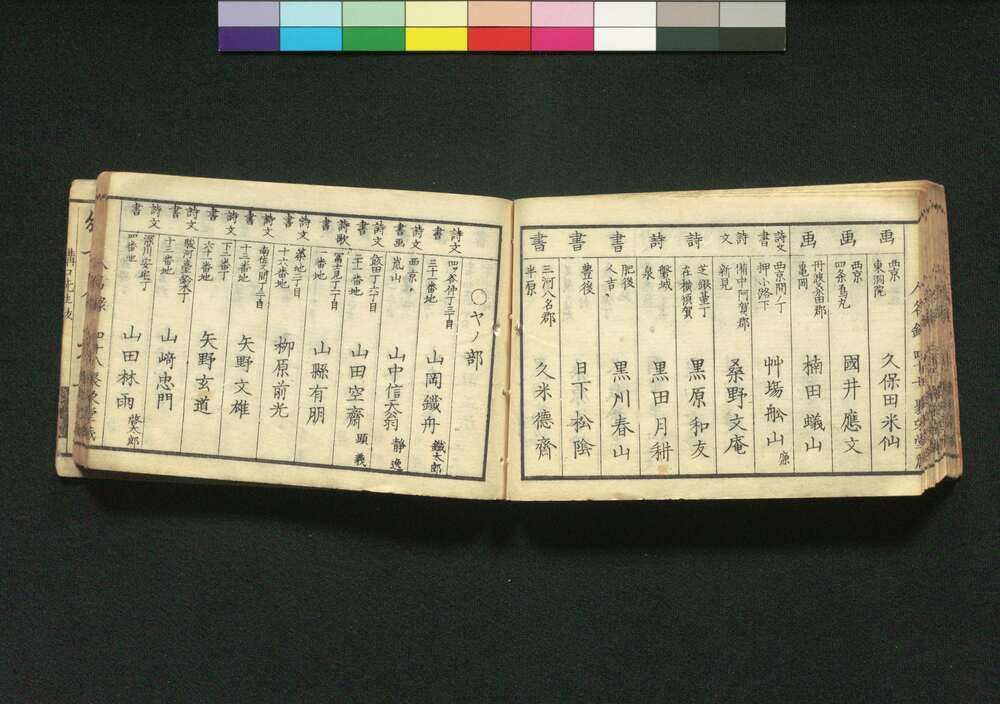 画
西京
東洞院
久保田米仙
画
西京
四条烏丸
國井應文
画
丹波桑田郡
亀岡
楠田蟻山
詩文
書
西京間ノ丁
押小路下
艸塲舩山 廉
詩
文
備中阿賀郡
新見
桑野文庵
詩
芝銀董丁
在横須賀
黒原和友
詩
磐城
泉
黒田月耕
書
肥後
人吉
黒川春山
書
豊後
日下松陰
書
三河八名郡
半原
久米德齋
○ヤノ部
詩文
書
四ッ谷仲丁三丁目
三十一番地
山岡鐵舟 鐵太郎
詩文
書画
西京
嵐山
山中信天翁 静逸
詩文
書
飯田丁二丁目
二十一番地
山田空齋 顕義
詩歌
書
冨士見丁一丁目
番地
山縣有朋
詩文
書
築地二丁目
十六番地
栁原前光
詩文
書
十三番地
矢野文雄
詩文
書
下二番丁
六十一番地
矢野玄道
詩文
書
駿河臺鈴木丁
十三番地
山﨑忠門
詩文
書
深川安宅丁
四番地
山田林雨 啓太郎